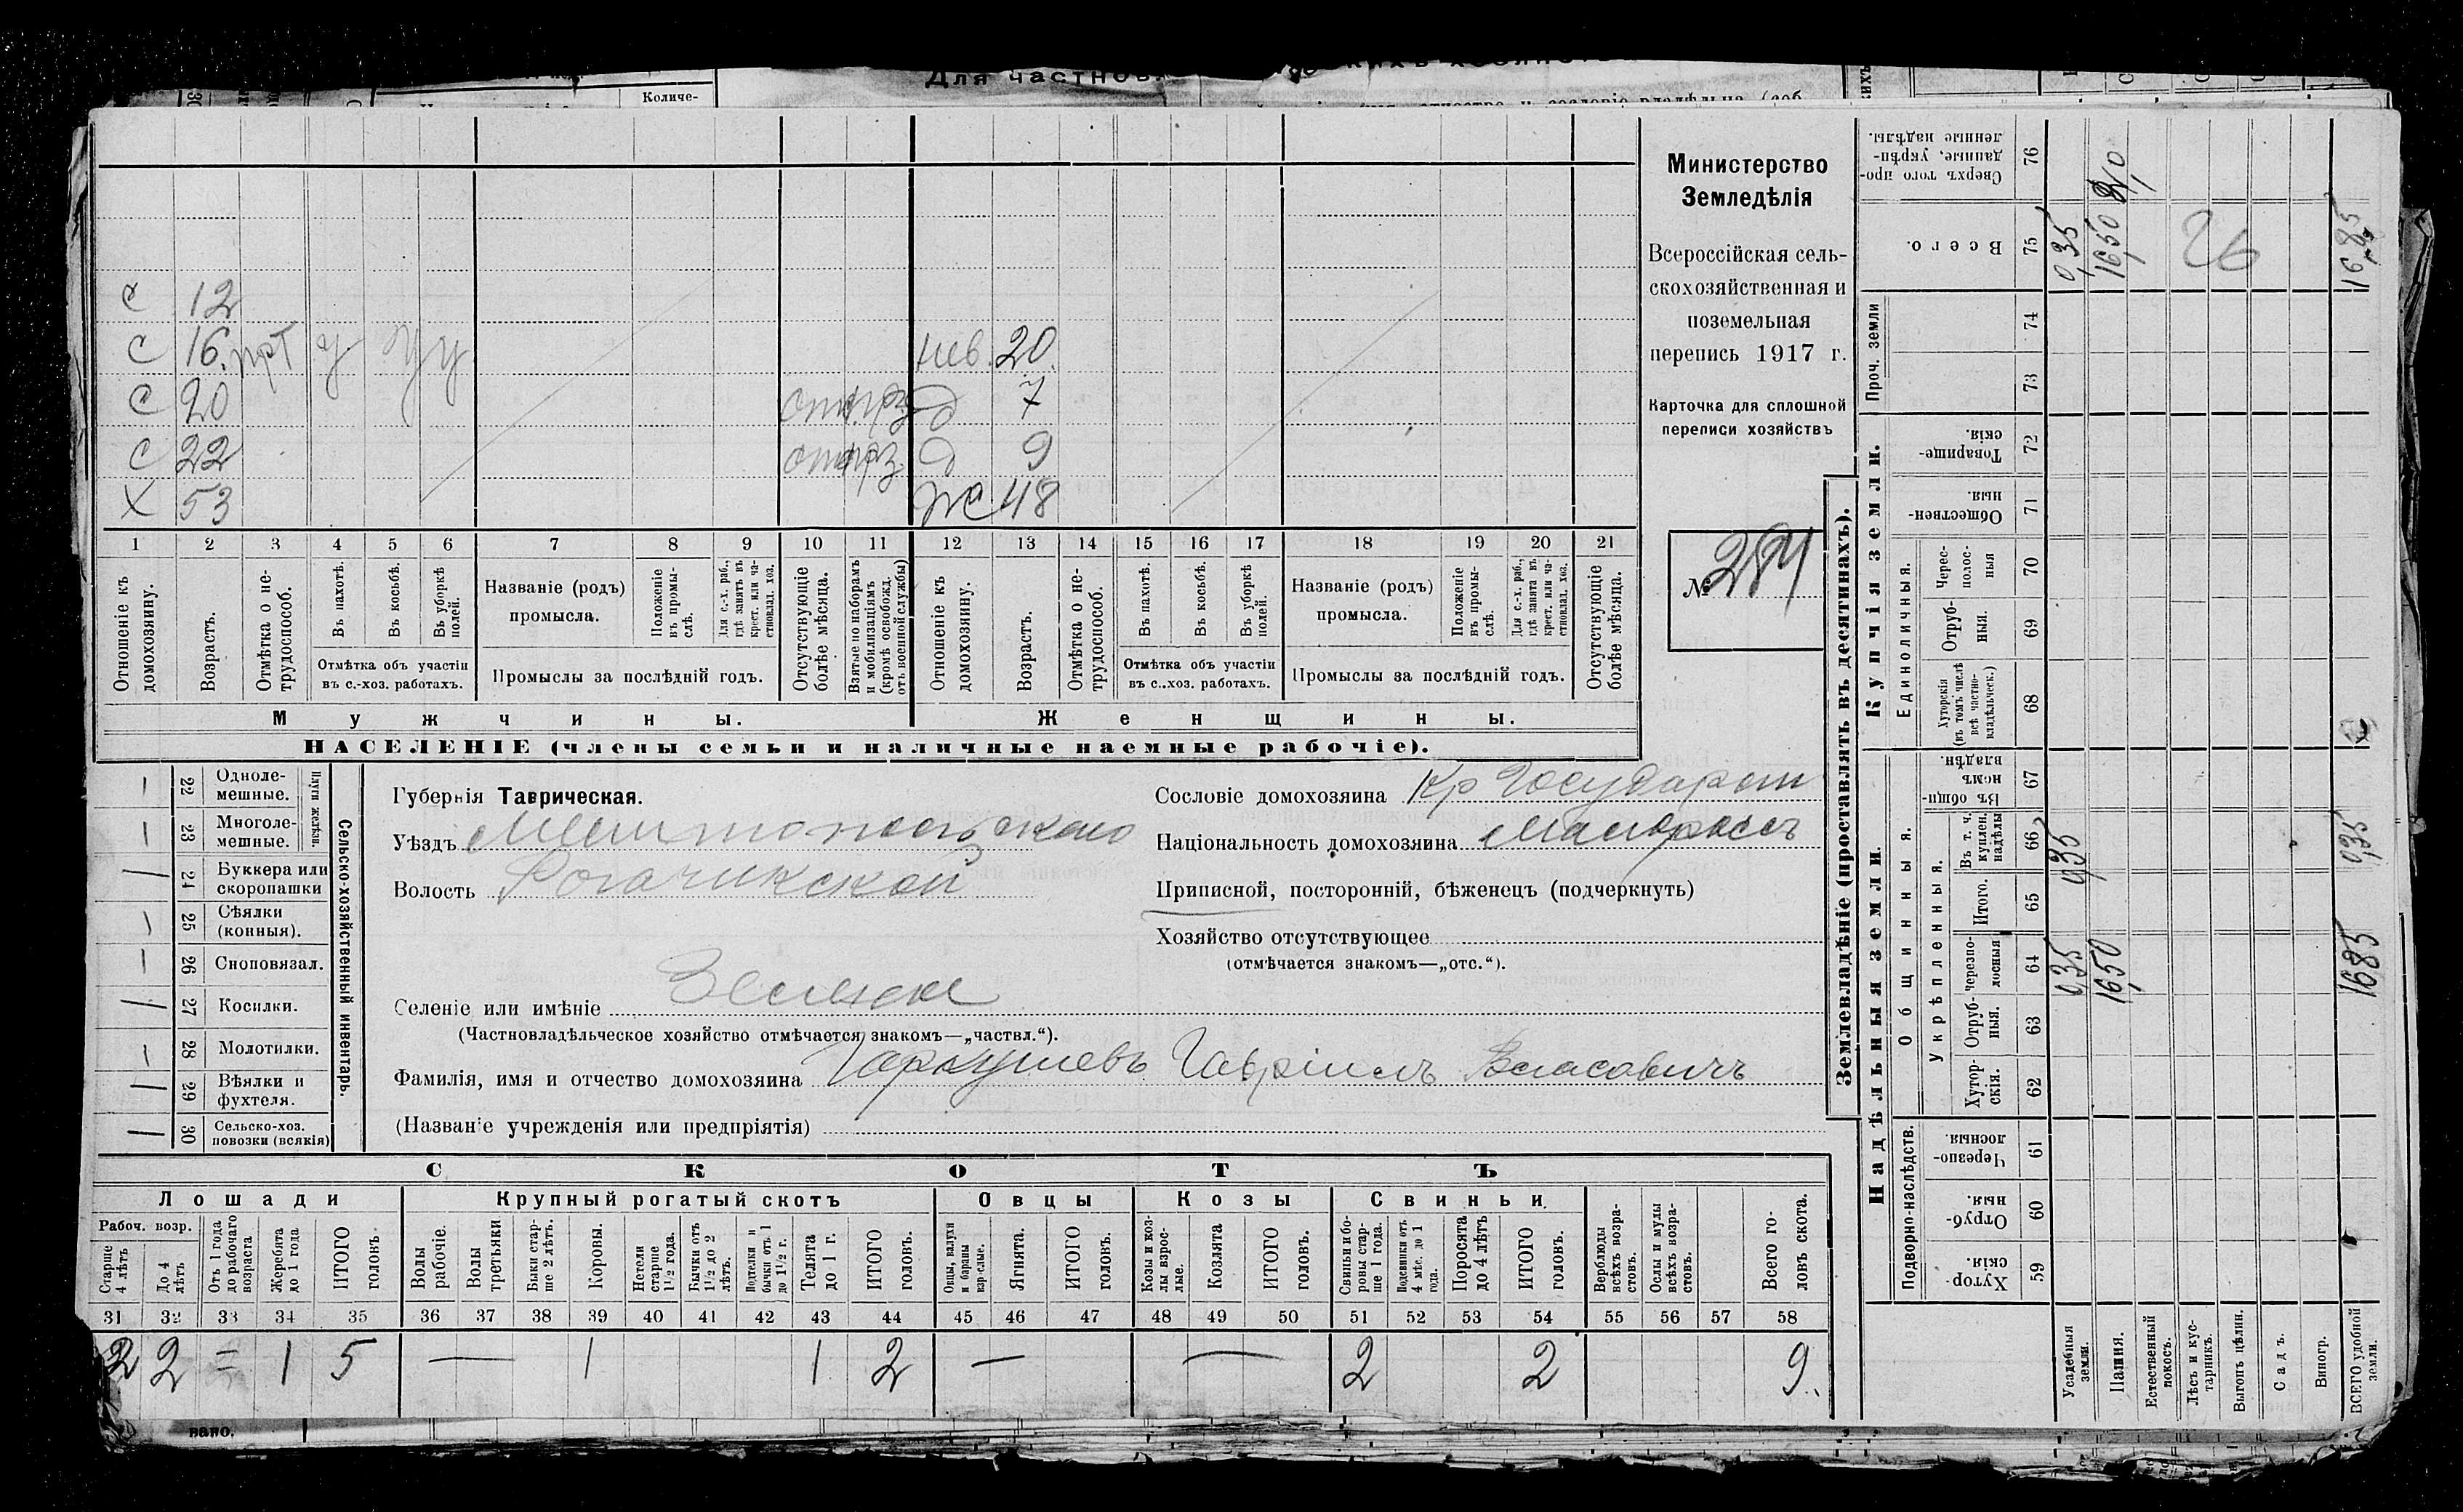 Для частнов
Количе-
С 12
С 16. нрт у у у нев. 20.
С 20 отс. рз д 7
С 22 отс рз д 9
Х 53 ж 48
1 2 3 4 5 6 7 8 9 10 11 12 13 14 15 16 17 18 19 20 21
Отношеніе къ домохозяину.
Возрастъ.
Отмѣтка о не-трудоспособ.
Въ пахотѣ.
Въ косьбѣ.
Въ уборкѣ полей.
Отмѣтка объ участіи въ с.-хоз. работахъ.
Названіе (родъ) промысла.
Положеніе въ промы-слѣ.
Для с.-х. раб., гдѣ занятъ въ крест. или ча-стновлад. хоз.
Промыслы за послѣдній годъ.
Отсутствующіе болѣе мѣсяца.
Взятые по наборамъ и мобилизаціямъ (кромѣ освобожд. отъ военной службы)
Отношеніе къ домохозяину.
Возрастъ.
Отмѣтка о не-трудоспособ.
Въ пахотѣ.
Въ косьбѣ.
Въ уборкѣ полей.
Отмѣтка объ участіи въ с..хоз. работахъ.
Названіе (родъ) промысла.
Положеніе въ промы-слѣ.
Для с.-х. раб., гдѣ занята въ крест. или ча-стновлад. хоз.
Промыслы за послѣдній годъ.
Отсутствующіе болѣе мѣсяца.
Мужчины. Женщины.
НАСЕЛЕНІЕ (члены семьи и наличные наемные рабочіе).
Министерство
Земледѣлія
Всероссійская сель-
скохозяйственная и
поземельная
перепись 1917 г.
Карточка для сплошной
переписи хозяйствъ
№ 284
Сельско-хозяйственный инвентарь.
Плуги желѣзн.
— 22 Одноле-мешные.
— 23 Многоле-мешные.
— 24 Буккера или скоропашки
— 25 Сѣялки (конныя).
— 26 Сноповязал.
— 27 Косилки.
— 28 Молотилки.
— 29 Вѣялки и фухтеля.
— 30 Сельско-хоз. повозки (всякія)
Губернія Таврическая.
Уѣздъ Мелитопольскаго
Волость Рогачикской
Селеніе или имѣніе
(Частновладѣльческое хозяйство отмѣчается знакомъ—„частвл.“).
Фамилія, имя и отчество домохозяина Гаркушевъ Гавріилъ Власовичъ
(Названіе учрежденія или предпріятія)
Сословіе домохозяина Кр Государст
Національность домохозяина Малороссъ
Приписной, посторонній, бѣженецъ (подчеркнуть)
Хозяйство отсутствующее
(отмѣчается знакомъ—„отс.“).
СКОТЪ
Лошади Крупный рогатый скотъ Овцы Козы Свиньи
Рабоч. возр.
Старше 4 лѣтъ
До 4 лѣтъ
Отъ 1 года до рабочаго возраста
Жеребята до 1 года
ИТОГО головъ
Волы рабочіе.
Волы третьяки
Быки стар-ше 2 лѣтъ.
Коровы.
Нетели старше 1 1/2 года.
Бычки отъ 1 1/2 до 2 лѣтъ.
Подтелки и бычки отъ 1 до 1 1/2 г.
Телята до 1 г.
ИТОГО головъ.
Овцы, валухи и бараны взрослые.
Ягнята.
ИТОГО головъ.
Козы и коз-лы взрос-лые.
Козлята
ИТОГО головъ.
Свиньи и бо-ровы стар-ше 1 года.
Подсвинки отъ 4 мѣс. до 1 года.
Поросята до 4 лѣтъ
ИТОГО головъ.
Верблюды всѣхъ возра-стовъ.
Ослы и мулы всѣхъ возра-стовъ.
Всего го-ловъ скота.
31 32 33 34 35 36 37 38 39 40 41 42 43 44 45 46 47 48 49 50 51 52 53 54 55 56 57 58
2 2 = 1 5 — 1 1 2 — — 2 2 9.
Землевладѣніе (проставлять въ десятинахъ).
Сверхъ того про-данные, укрѣп-ленные надѣлы. 76
Всего. 75 0,35 16,50 26 16,85
Проч. земли 74 73
Купчія земли.
Товарище-скія. 72
Обществен-ныя. 71
Единоличныя.
Черес-полос-ныя 70
Отруб-ныя. 69
Хуторскія (въ томъ числѣ всѣ частно-владѣльческ.) 68
Надѣльныя земли.
Общинныя.
Въ общи-номъ владѣн. 67
Укрѣпленныя.
Въ т. ч. куплен. надѣлы 66 0,35 0,35
Итого. 65
Черезпо-лосныя 64 0,35 16,50 16,85
Отруб-ныя. 63
Хутор-скія. 62
Подворно-наслѣдств.
Черезпо-лосныя. 61
Отруб-ныя. 60
Хутор-скія. 59
Усадебныя земли.
Пашня.
Естественный покосъ.
Лѣсъ и кус-тарникъ.
Выгонъ цѣлин.
Садъ.
Виногр.
ВСЕГО удобной земли.
вано.